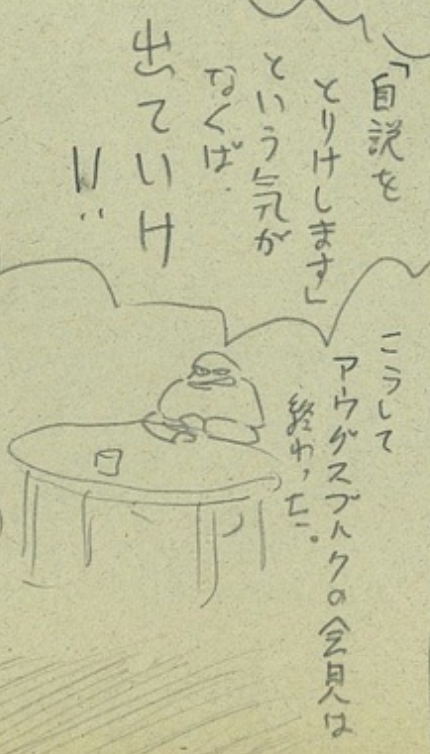 「自説を
とりけします」
という気が
なくば
出ていけ
!!
こうして
アウグスブルクの会見は
終わった。